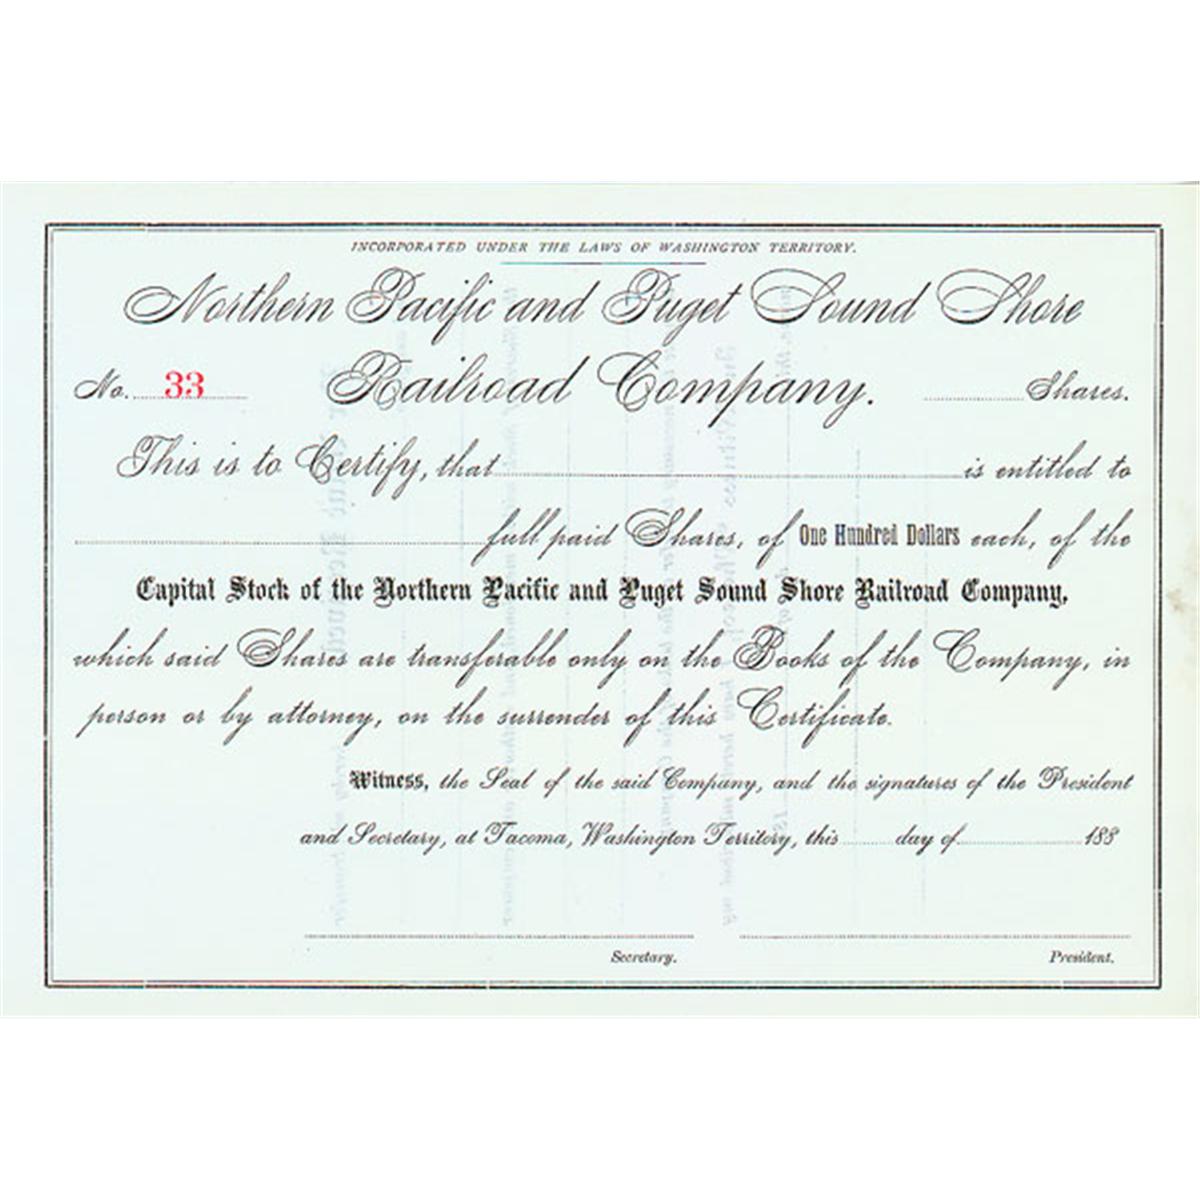 INCORPORATED UNDER THE LAWS OF WASHINGTON TERRITORY.
Northern Pacific and Puget Sound Shore
No. 33 Railroad Company. Shares.
This is to Certify, that is entitled to
full paid Shares, of One Hundred Dollars each, of the
Capital Stock of the Northern Pacific and Puget Sound Shore Railroad Company,
which said Shares are transferable only on the Books of the Company, in
person or by attorney, on the surrender of this Certificate.
Witness, the Seal of the said Company, and the signatures of the President
and Secretary, at Tacoma, Washington Territory, this day of 188
Secretary. President.